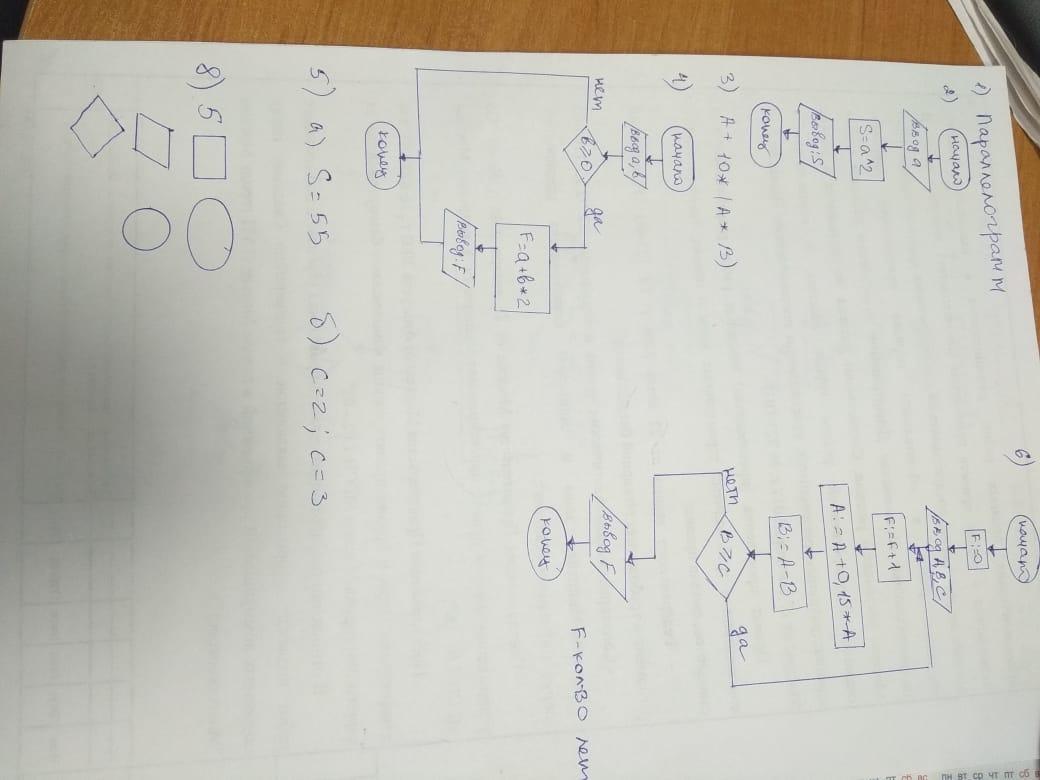 1) Параллелограмм
2) начало
ввод a
S=a^2
вывод: S
конец
3) A + 10* |A * B)
4) начало
ввод a, b
b≥0
нет
да
F=a+b*2
вывод: F
конец
5) а) S=55 б) c=2; c=3
8) 5
6)
начало
F:=0
ввод A,B,C
F:=F+1
A:=A+0,15*A
B:=A-B
B≥C
нет
да
вывод F
конец
F-кол-во лет
пн вт ср чт пт сб